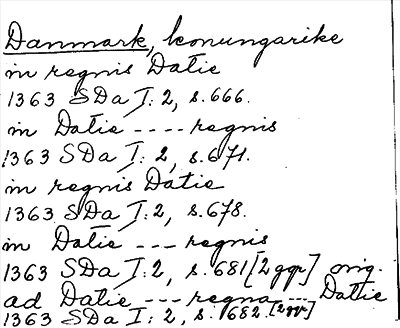 Danmark, konungarike
in regnis Datie
1363 SDa I: 2, s. 666.
in Datie ---- regnis
1363 SDa I: 2, s. 671.
in regnis Datie
1363 SDa I: 2, s. 678.
in Datie --- regnis
1363 SDa I: 2, s. 681 [2 ggr] orig.
ad Datie --- regna --- Dattie
1363 SDa I: 2, s. 682. [2 ggr]